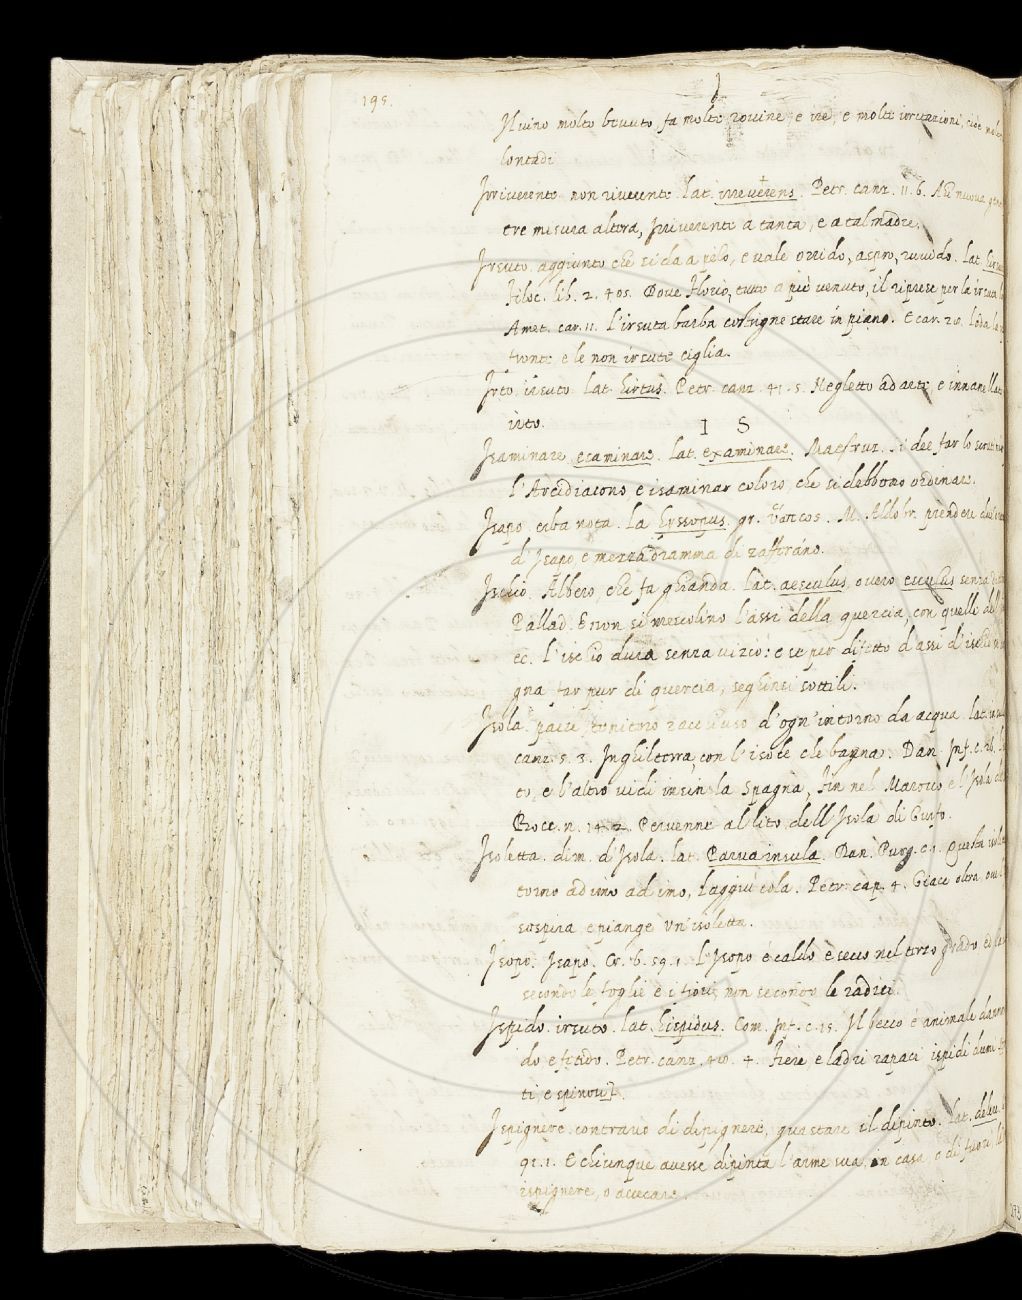 195.
I
Il vino molto bevuto fa molte rovine e ire, e molte irritazioni, cioè
lontadi
Irriverente non riverente lat. irreverens. Petr. canz. 11. 6. Ad nuova
tre misura altera, Irriverente a tanta, e a tal madre.
Irsuto. aggiunto che si da a pelo, e vale orrido, aspro, ruvido. Lat.
Filoc. lib. 2. 405. Dove Florio, tutto a piè venuto, il riprese per la irsuta
Amet. car. 11. L'irsuta barba costrigne stare in piano. E car. 20. loda la
fronte e le non irsute ciglia.
Irto. irsuto. Lat. hirtus. Petr. canz. 41. 5. Negletto ad arte, e innanellato
irto.
I S
Isaminare esaminare. lat. examinare. Maestruz. si dee far lo
l'Arcidiacono e isaminar coloro, che si debbono ordinare.
Isapo, erba nota. La hyssopus. gr. M. Aldobr. prendere
d'Isapo, e mezza dramma di zafferano.
Ischio. Albero, che fa ghianda. lat. aesculus, overo esculus senza
Pallad. E non si mescolino l'assi della quercia, con quelli
ec. l'ischio dura senza vizio: e se per difetto d'assi d'ischio
gna far pur di quercia, seghinsi sottili.
Isola. paese racchiuso d'ogn'intorno da acqua. lat.
canz. 5. 3. Inghilterra, con l'isole che bagna. Dan. Inf. c. 26.
to, e l'altro vidi insin la Spagna, Fin nel Marocco, e l'Isola
Bocc. n. 14. 2. Pervenne al lito dell'Isola di Gurfo.
Isoletta. dim. d'Isola. lat. Parva insula. Dan. Purg. c. 1. Questa
torno ad imo ad imo, Laggiù cola. Petr. cap. 4. Giace oltra, ove
sospira e piange Un'isoletta.
Isopo. Isapo. Cr. 6. 59. 1. L'Isopo è caldo e secco nel terzo grado
secondo le foglie e i fiori, non secondo le radici.
Ispido. irsuto. lat. hispidus. Com. Inf. c. 15. Il becco è animale
do e fetido. Petr. canz. 40. 4. Fiere, e ladri rapaci ispidi dumi
ti, e spinosi.
Ispignere. contrario di dipignere, guastare il dipinto. lat.
91. 1. E chiunque avesse dipinta l'arme sua, in casa, o di fuori
ispignere, o accecare.